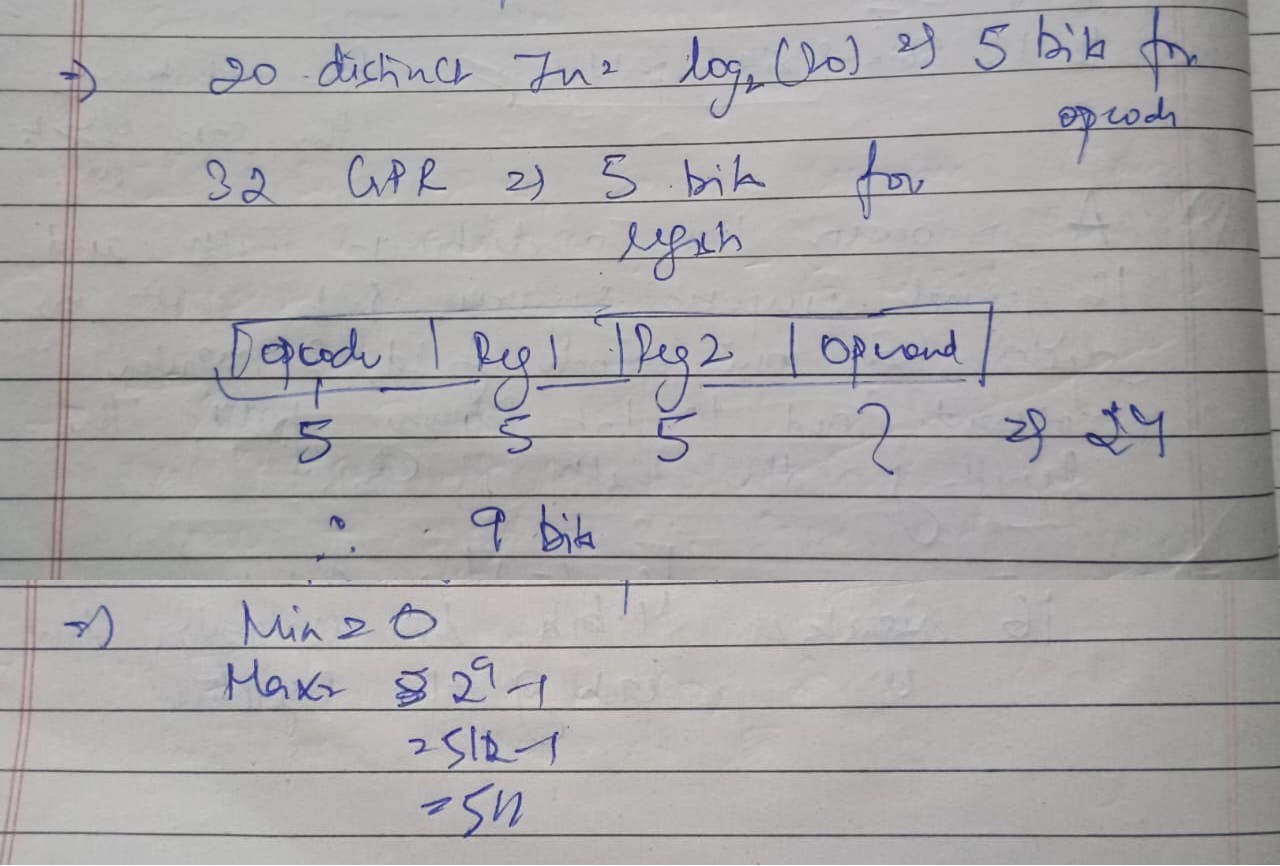 ⇒ 20 distinct In = log₂(20) ⇒ 5 bits for
opcode
32 GPR ⇒ 5 bits for
register
opcode | Reg 1 | Reg 2 | Operand
5 5 5 ? ⇒ 24
∴ 9 bits
⇒ Min = 0
Max = 2⁹-1
= 512-1
= 511